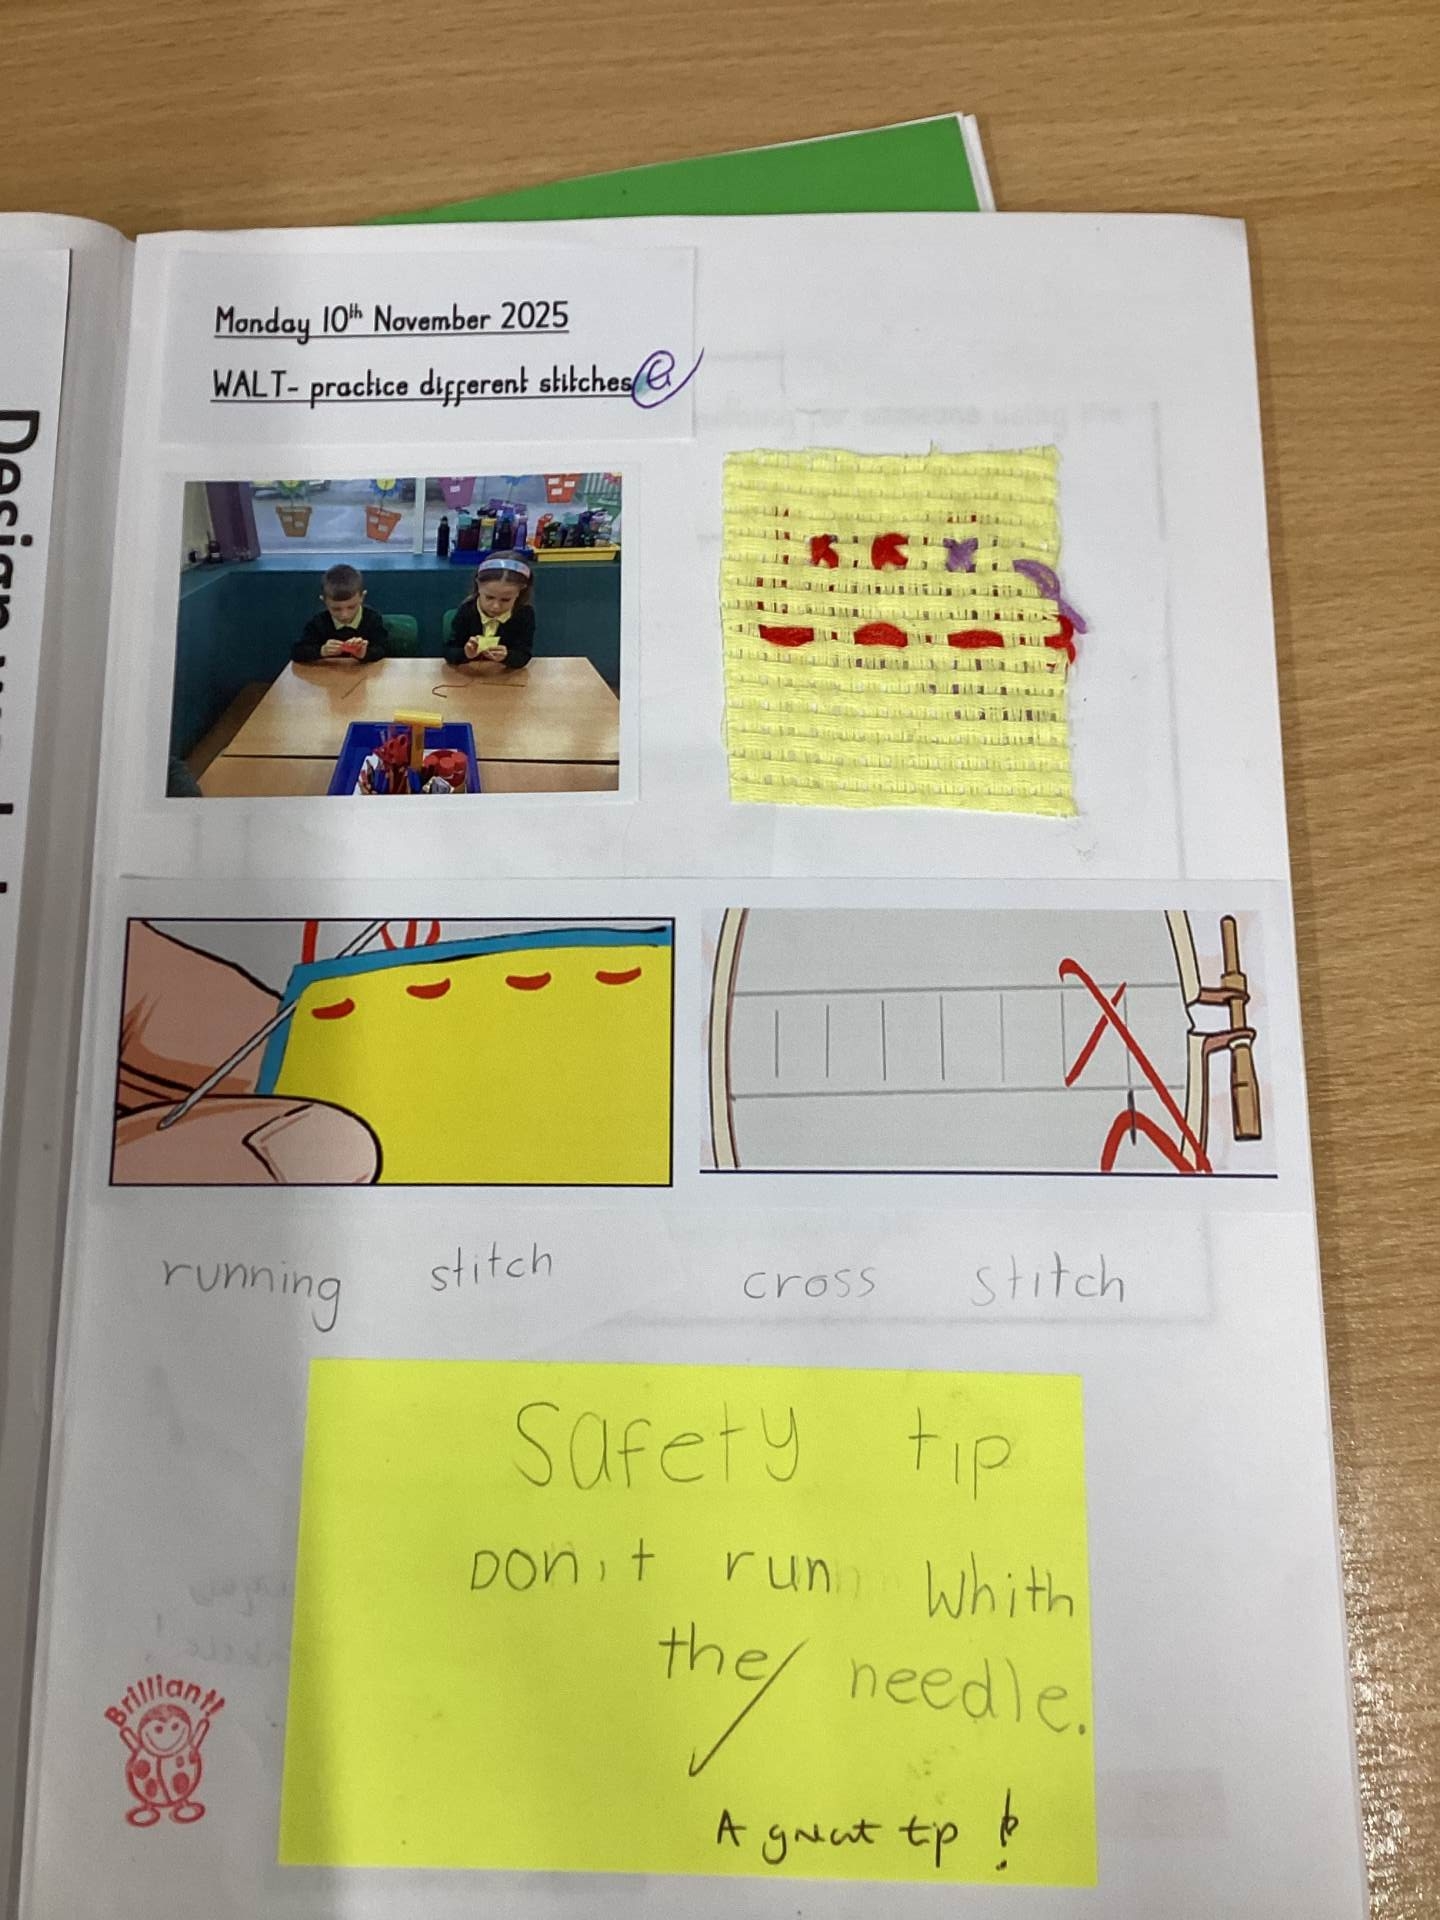 Monday 10th November 2025
WALT- practice different stitches
running stitch
cross stitch
Safety tip
Don't run whith
the needle.
A great tip!
Brilliant!